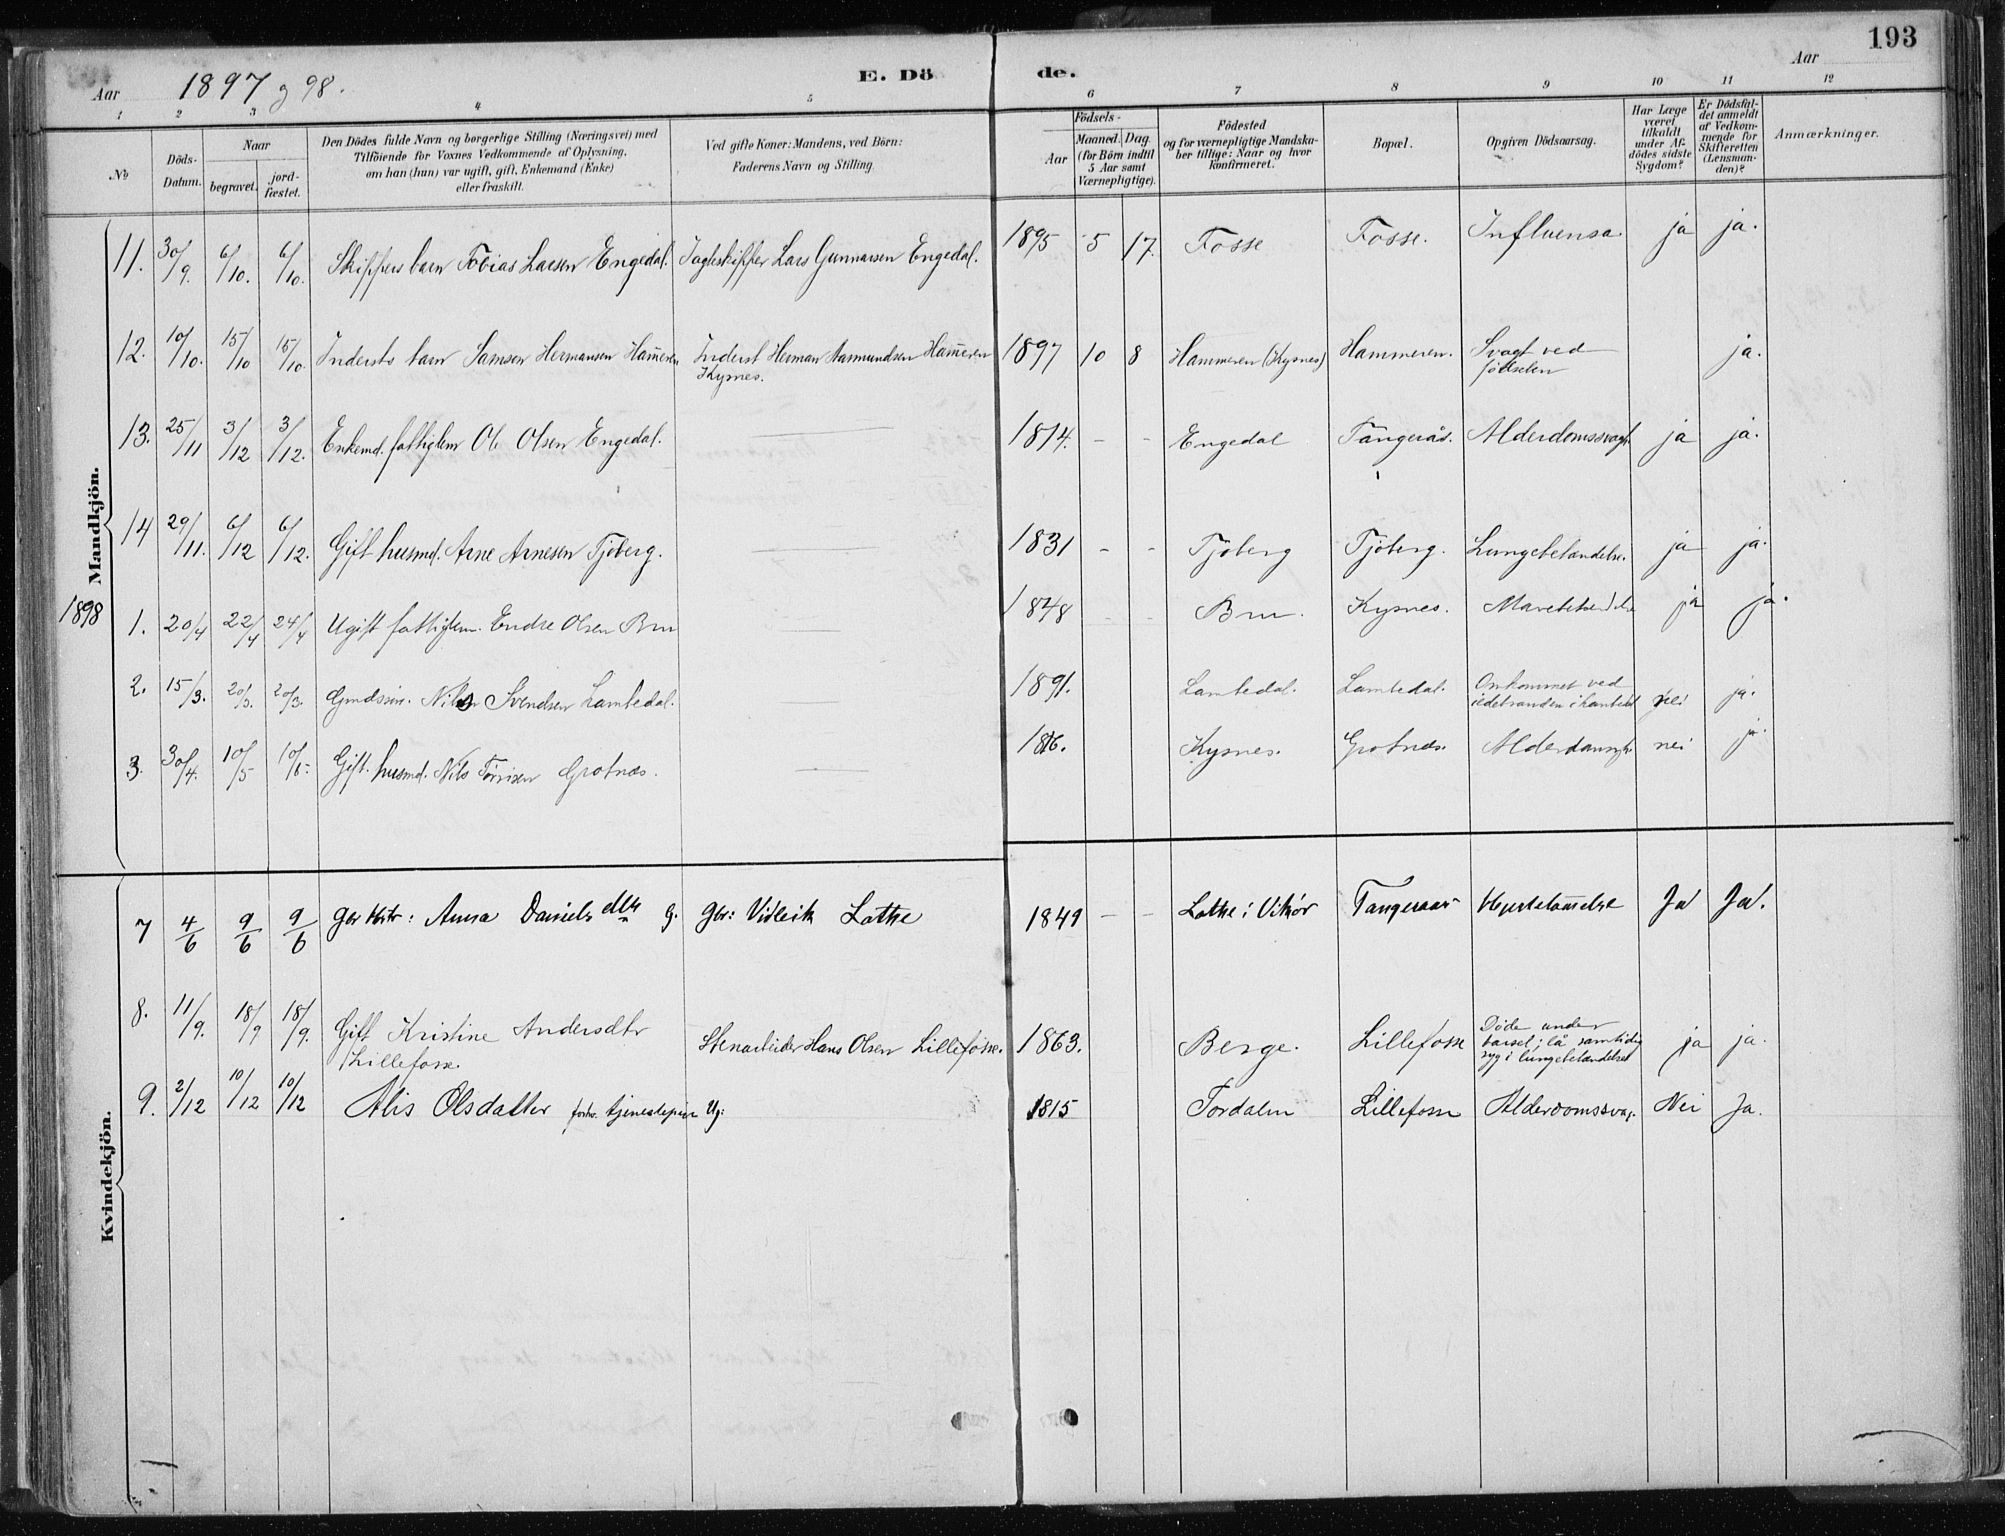 193
Aar 1897 og 98.
E. Döde.
Aar
1 2 3 4 5 6 7 8 9 10 11 12
No
Döds-Datum.
Naar
begravet.
jord-fæstet.
Den Dödes fulde Navn og borgerlige Stilling (Næringsvei) med
Tilföiende for Voxnes Vedkommende af Oplysning,
om han (hun) var ugift, gift, Enkemand (Enke)
eller fraskilt.
Ved gifte Koner: Mandens, ved Börn:
Faderens Navn og Stilling.
Födsels-
Aar
Maaned. Dag.
(for Börn indtil
5 Aar samt
Værnepligtige).
Födested
og for værnepligtige Mandska-
ber tillige: Naar og hvor
Konfirmeret.
Bopæl.
Opgiven Dödsaarsag.
Har Læge
været
tilkaldt
under Af-
dödes sidste
Sygdom?
Er Dödsfal-
det anmeldt
af Vedkom-
mende for
Skifteretten
(Lensman-
den)?
Anmærkninger.
Mandkjön.
11. 30/9. 6/10. 6/10. Skippers barn Tobias Larsen Engedal. Jagteskipper Lars Gunnarsen Engedal. 1895 5 17. Fosse Fosse. Influensa. ja ja.
12. 10/10. 15/10 15/10. Indersts barn Samson Hermansen Ham̄eren Inderst Herman Aamundsen Ham̄eren 1897 10 8 Hammeren (Kysnes) Hammeren. Svagt ved ja.
Kysnes.
födselen
13. 25/11 3/12 3/12. Enkemd. fattiglem Ole Olsen Engedal. 1814. - - Engedal Tangerås. Alderdomssvagh. ja ja.
14 29/11. 6/12 6/12. Gift husmd. Arne Arnesen Tjöberg. 1831 - - Tjöberg Tjöberg. Lungebetændelse. ja ja.
1898
1. 20/4 22/4 24/4 Ugift fattiglem. Endre Olsen Bru 1848 - - Bru. Kysnes. ja ja.
2. 15/3. 20/3. 20/3. Nils Svendsen Lambedal. 1891. Lambedal. Lambedal. Omkommet ved nei ja.
3. 30/4. 10/5 10/5. Gift. husmd. Nils Torrisen Grotnæs. 1816. Kysnes. Grotnæs. nei ja.
Kvindekjön.
7 4/6 9/6 9/6 Anna Daniels g. Gbr: Vidleik Lothe 1849 - - Lothe i Vikör Tangeraas Hjertebetændelse Ja Ja.
8. 11/9. 18/9 18/9. Gift Kristine Andersdtr Stenarbeider Hans Olsen Lillefosse. 1863. Berge. Lillefosse Döde under ja ja.
Lillefosse.
barsel; lå samtidig
syg i lungebetændelse
9. 2/12 10/12 10/12 Alis Olsdatter forhv. tjenestepige Ug: 1815 Tordalen Lillefosse Alderdomssvag. Nei Ja.